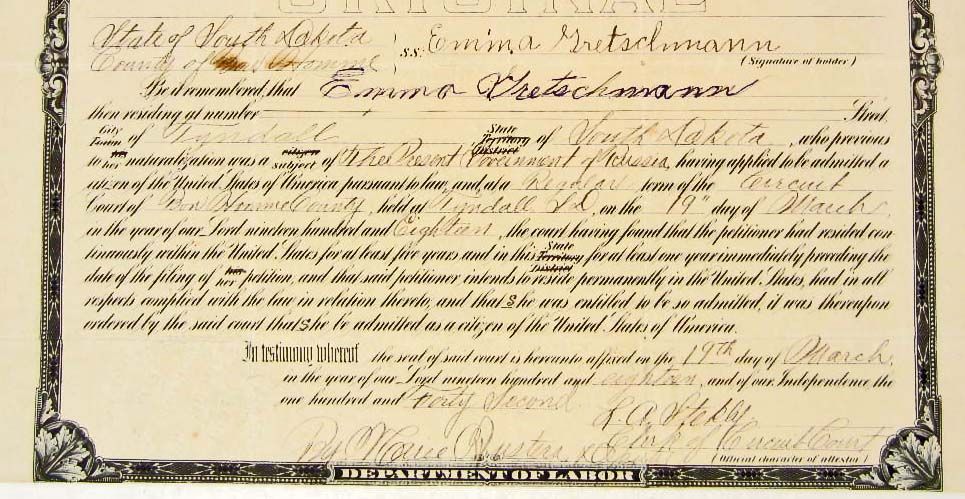 ORIGINAL
State of South Dakota
County of Bon Homme } s.s: Emma Gretschmann
(Signature of holder)
Be it remembered, that Emma Gretschmann
then residing at number Street,
City Town of Tyndall State Territory District of South Dakota, who previous
to his her naturalization was a citizen subject of The Present Government of Russia, having applied to be admitted a
citizen of the United States of America pursuant to law, and, at a Regular term of the Circuit
Court of Bon Homme County, held at Tyndall S.D., on the 19" day of March,
in the year of our Lord nineteen hundred and Eighteen, the court having found that the petitioner had resided con
tinuously within the United States for at least five years and in this State Territory District for at least one year immediately preceding the
date of the filing of his her petition, and that said petitioner intends to reside permanently in the United States, had in all
respects complied with the law in relation thereto, and that She was entitled to be so admitted, it was thereupon
ordered by the said court that She be admitted as a citizen of the United States of America.
In testimony whereof the seal of said court is hereunto affixed on the 19th day of March,
in the year of our Lord nineteen hundred and eighteen, and of our Independence the
one hundred and Forty Second
Clerk of Circuit Court
By Deputy
(Official character of attestor)
DEPARTMENT OF LABOR